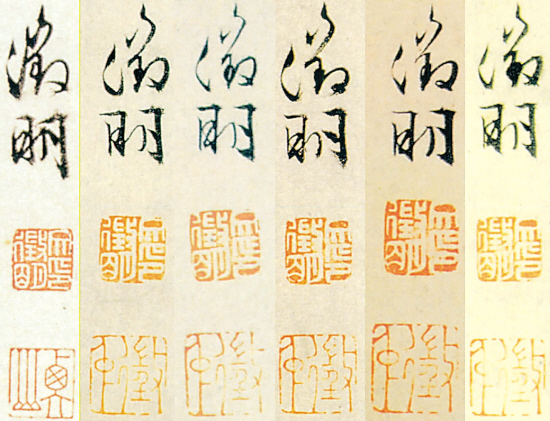 徵明
文徵明印
徵明
文徵明印
徵仲
徵明
文徵明印
徵仲
徵明
文徵明印
徵仲
徵明
文徵明印
徵仲
徵明
文徵明印
徵仲